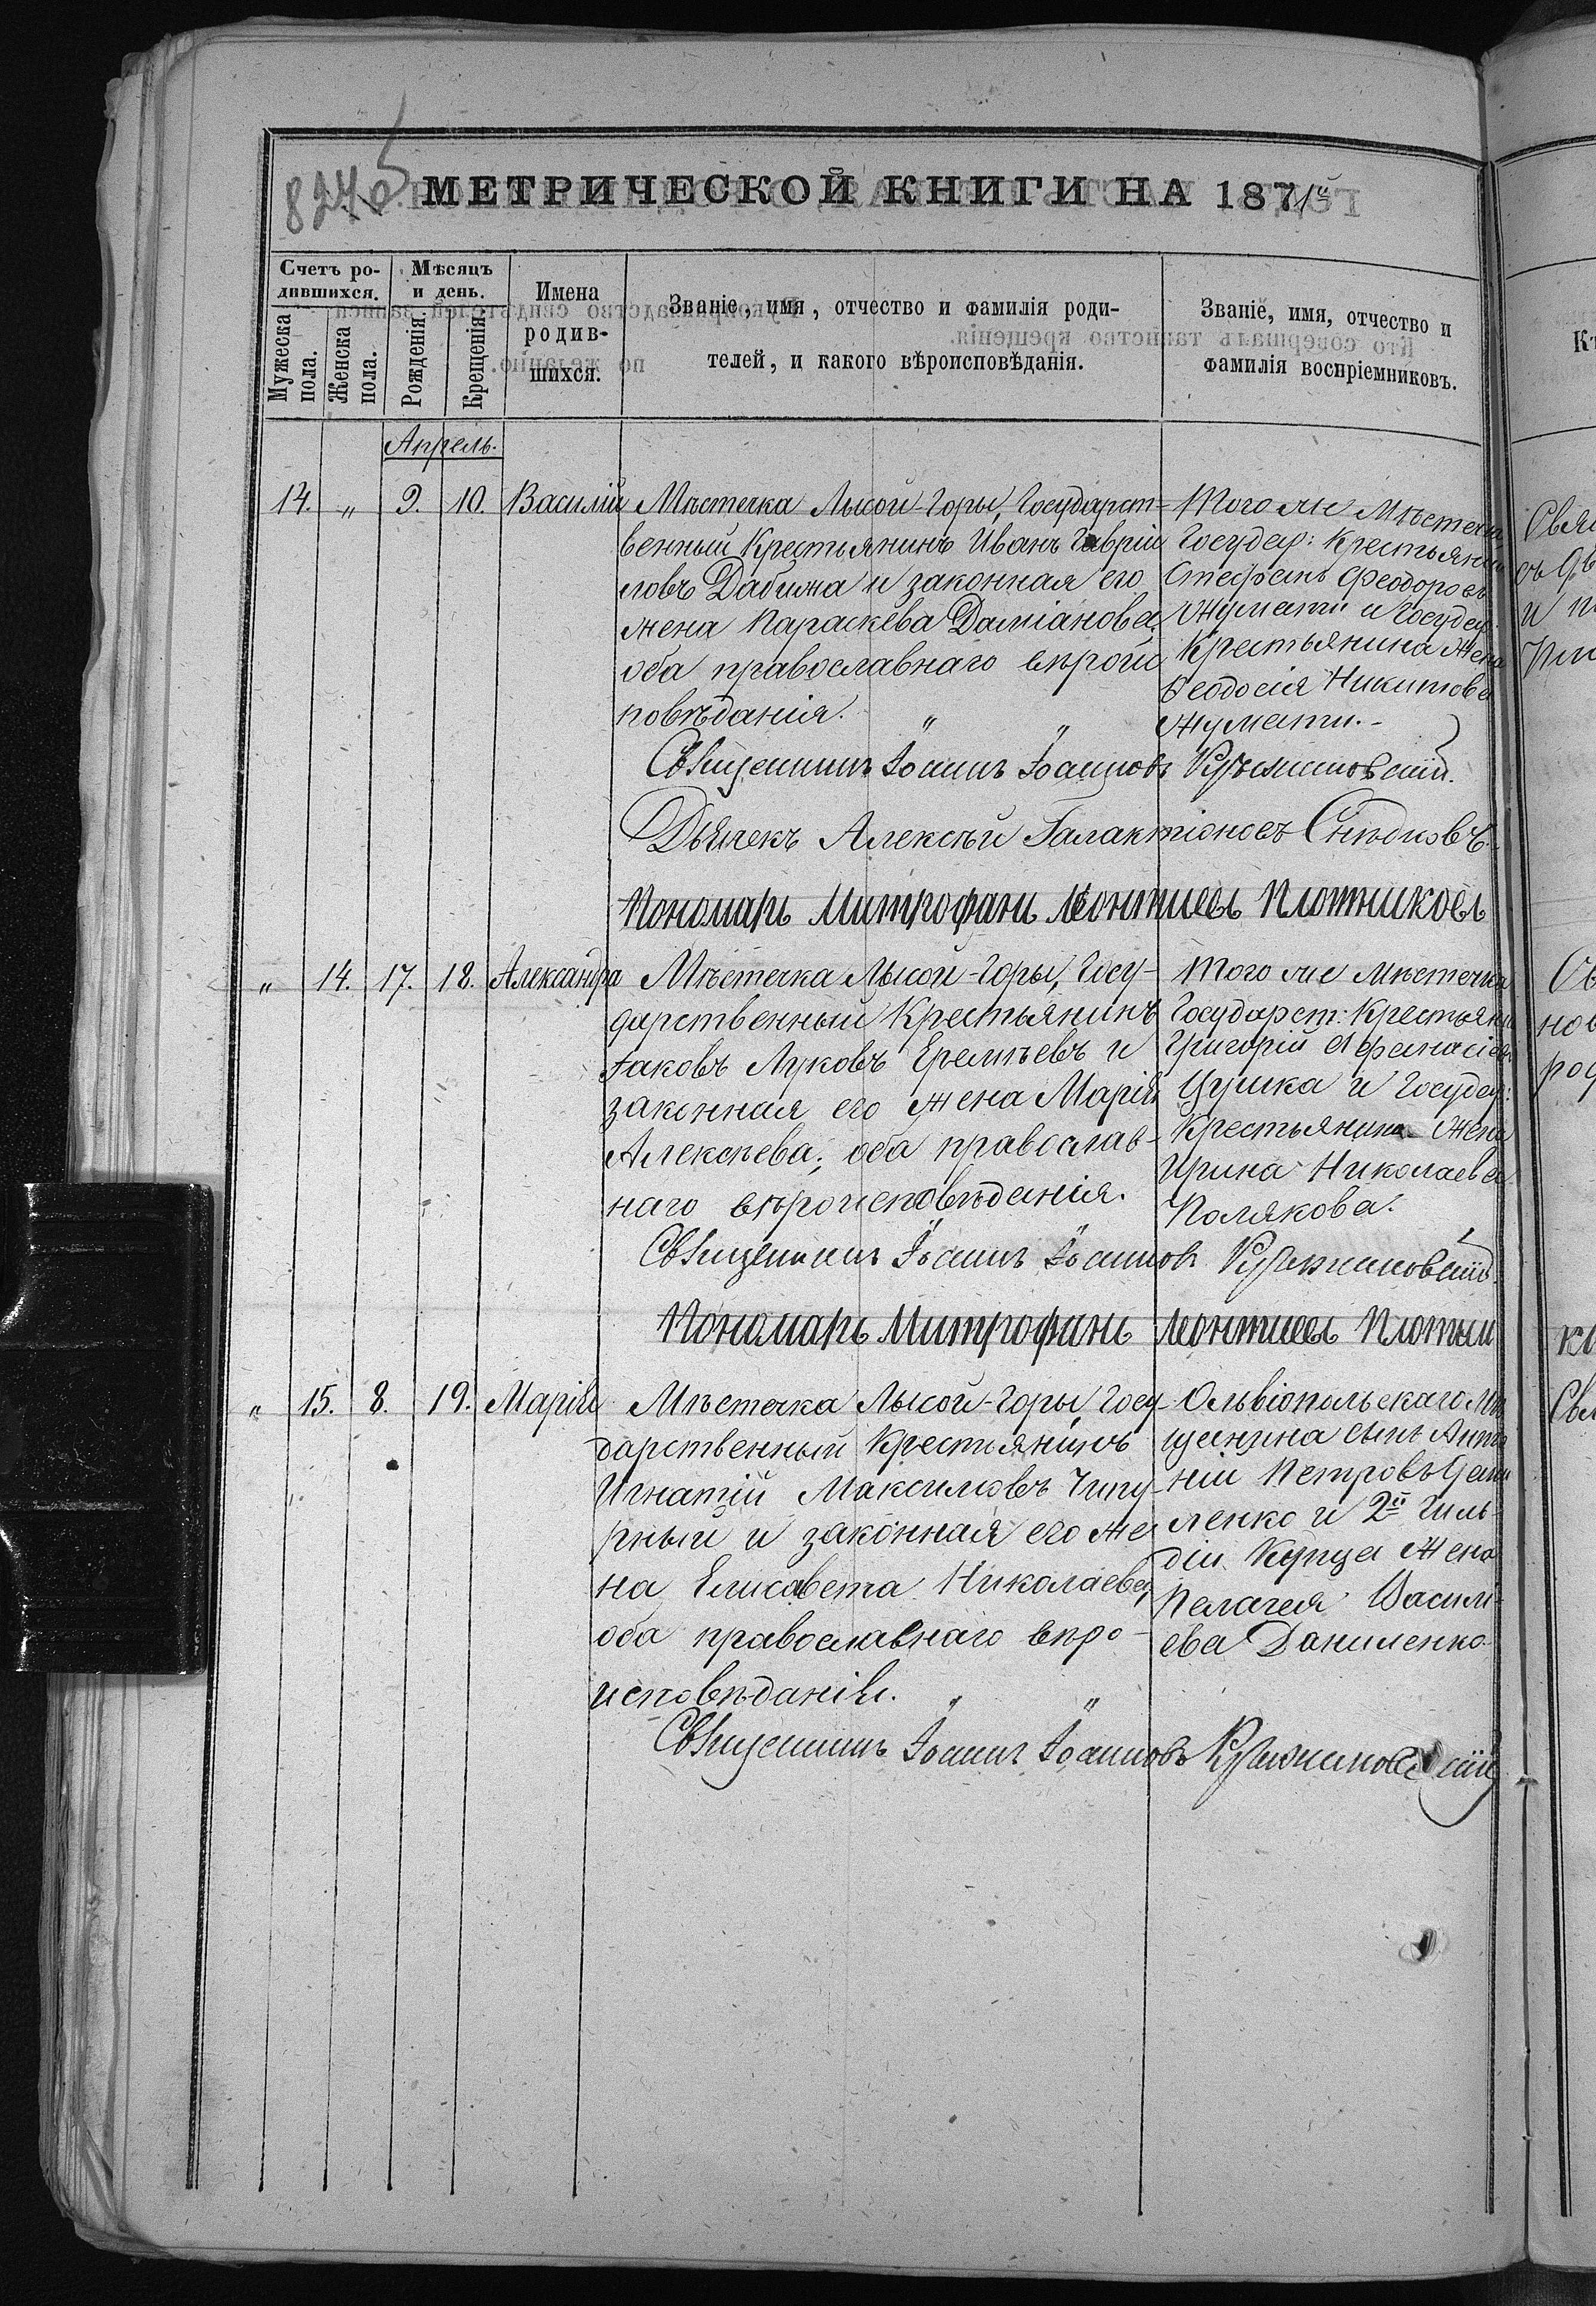 МЕТРИЧЕСКОЙ КНИГИ НА 1871й
Счетъ ро-
дившихся.
Мѣсяцъ
и день.
Мужеска
пола.
Женска
пола.
Рожденія.
Крещенія.
Имена
родив-
шихся.
Званіе, имя, отчество и фамилія роди-
телей, и какого вѣроисповѣданія.
Званіе, имя, отчество и
фамилія воспріемниковъ.
Апрель.
14. „ 9. 10. Василій
Мѣстечка Лысой-Горы, Государст-
венный Крестьянинъ Иванъ Гавріи
ловъ Дабижа и законная его
жена Параскева Даміанова,
оба православнаго вѣроис
повѣданія. „ „
Того же Мѣстечка
Государ: Крестьянин
Стефанъ Феодоровъ
Жумати и Государ:
Крестьянина жена
Феодосія Никитова
Жумати.-
Священникъ Іоаннъ Іоанновъ
Дьячекъ Алексѣй Галактіоновъ Снѣдковъ.
Пономарь Митрофанъ Леонтиевъ Плотниковъ
„ 14. 17. 18. Александра
Мѣстечка Лысой-Горы, Госу-
дарственный Крестьянинъ
Іаковъ Луковъ Еремѣевъ и
законная его жена Марія
Алексѣева; оба православ-
наго вѣроисповѣданія.
Того же Мѣстечка
Государст: Крестьянин
Григорій Афанасіев:
Цушка и Государ:
Крестьянина жена
Ирина Николаева
Полякова.
Священникъ Іоаннъ Іоанновъ
Пономарь Митрофанъ Леонтиевъ Плотни
„ 15. 8. 19. Марія
Мѣстечка Лысой-Горы, Госу
дарственный Крестьянинъ
Игнатій Максимовъ Чипу-
рный и законная его же
на Елисавета Николаева,
оба православнаго вѣро-
исповѣданія. „ „
Ольвіопольскаго Мѣ
щанина сынъ Анто
ній Петровъ Дани
ленко и 2й Гиль-
діи Купца жена
Пелагея Василі-
ева Даниленко
Священникъ Іоаннъ Іоанновъ